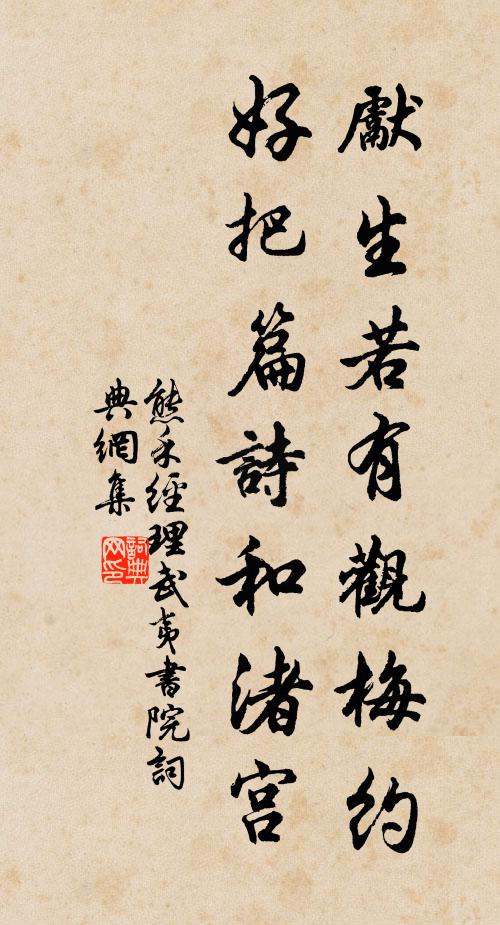 獻生若有觀梅約
好把篇詩和渚宮
熊禾經理武夷書院詞
典網集
詞典网印